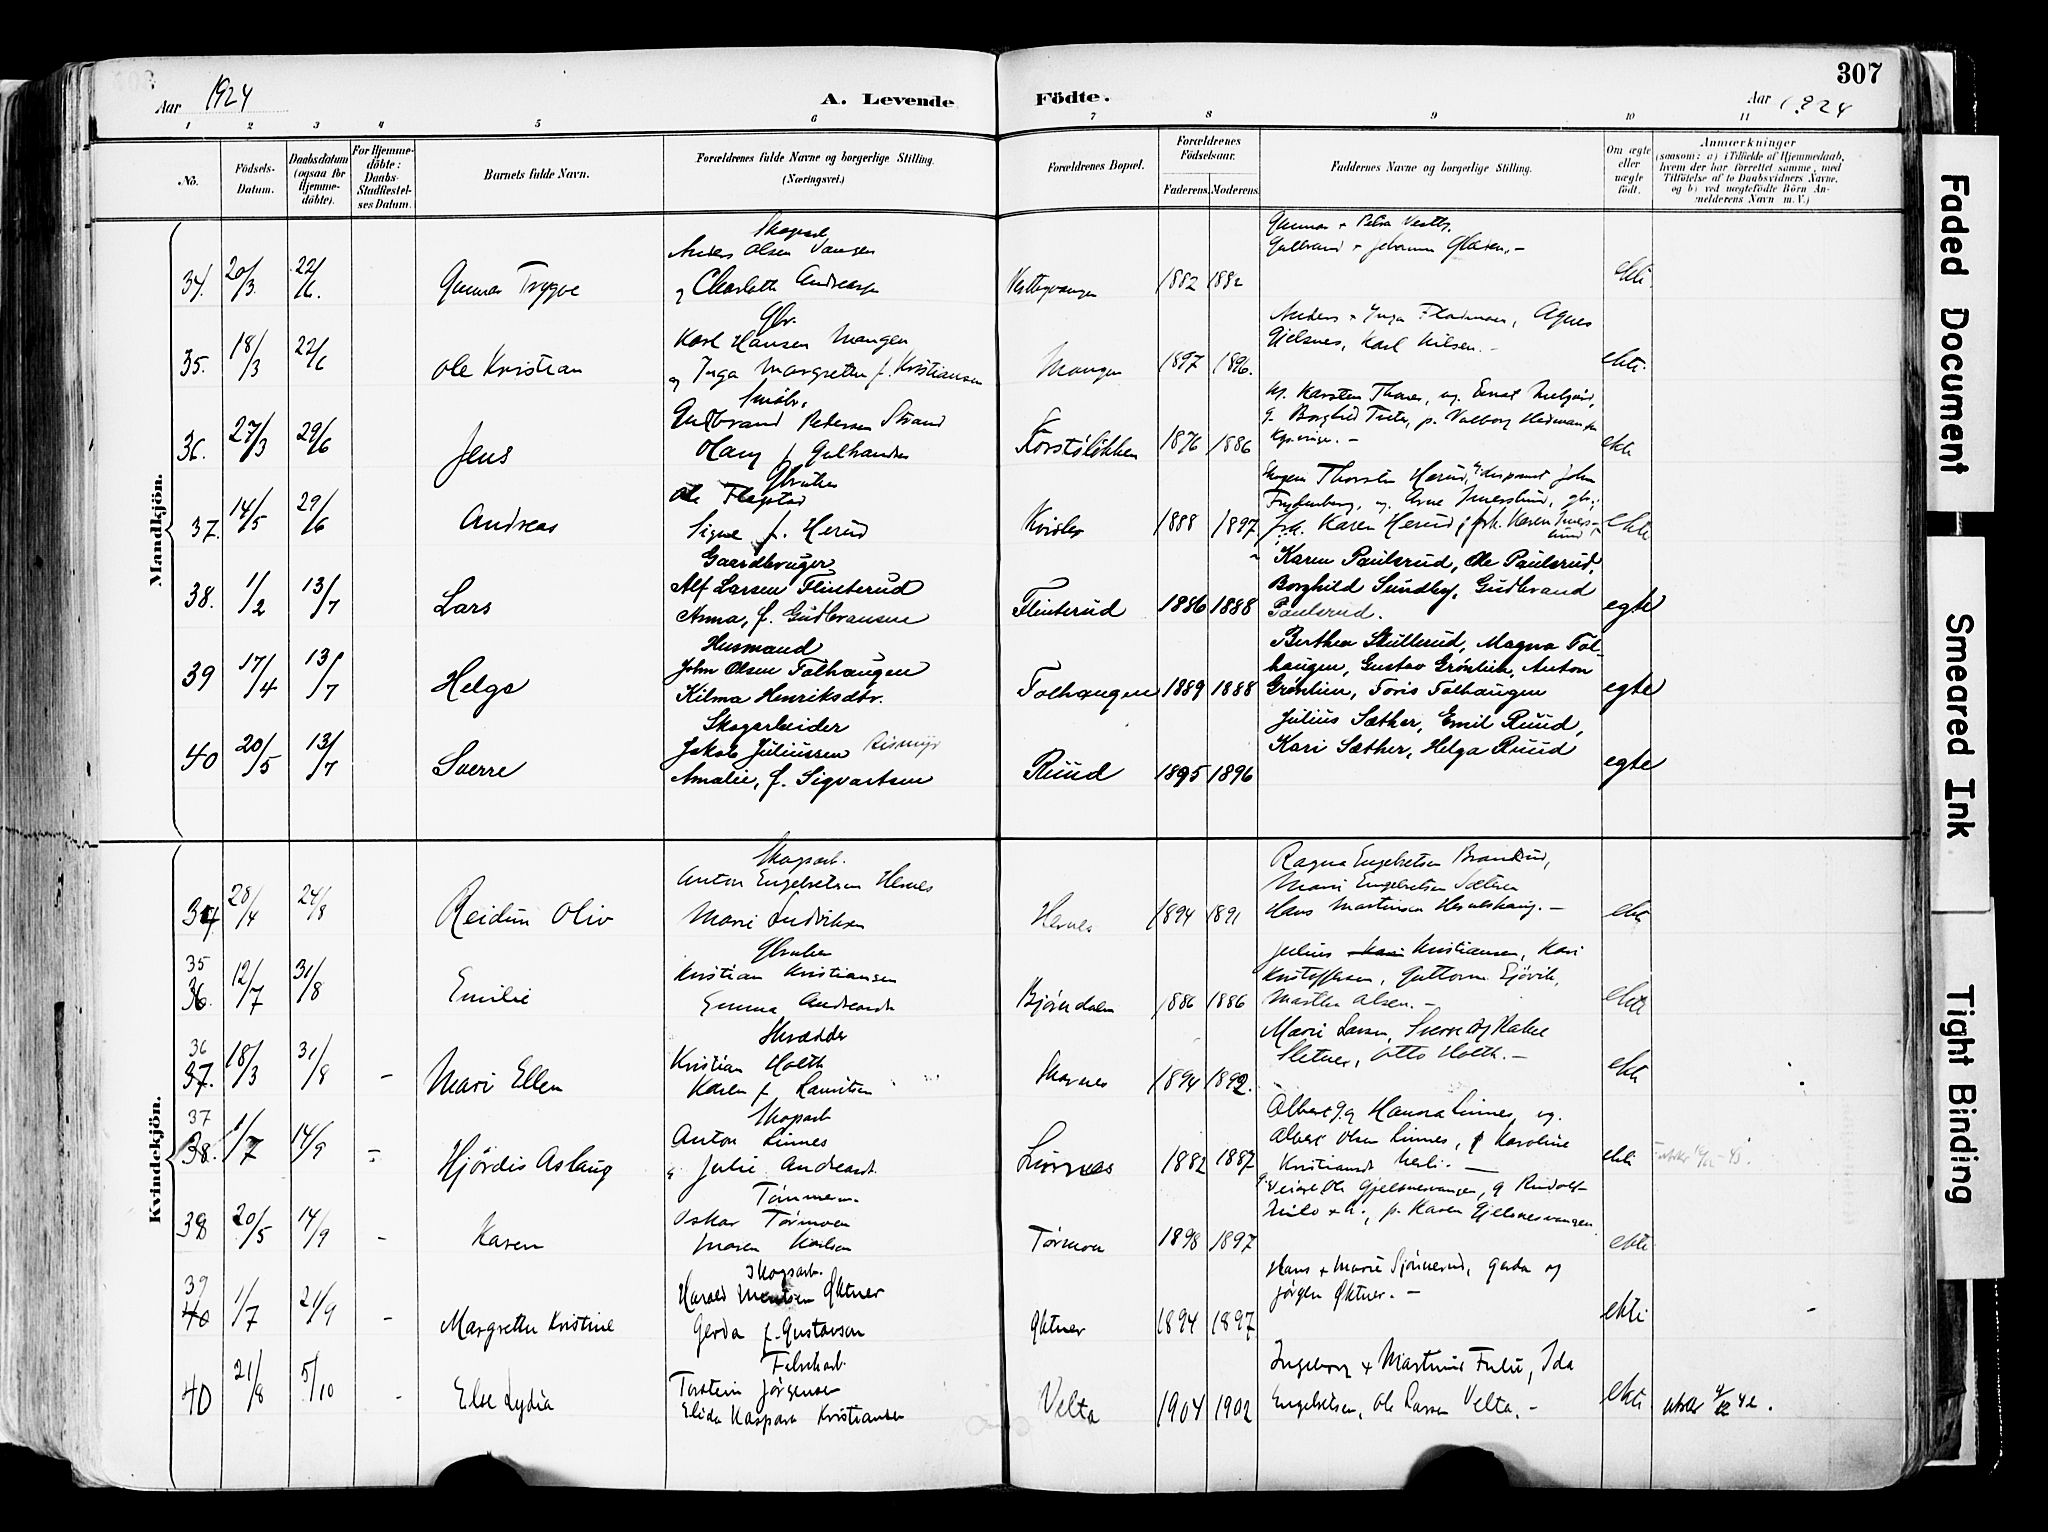 307
Aar 1924
A. Levende Födte.
Aar 1924
1 2 3 4 5 6 7 8 9 10 11
No.
Födsels-Datum.
Daabsdatum (ogsaa for Hjemme-döbte).
For Hjemme-döbte: Daabs-Stadfæstel-ses Datum.
Barnets fulde Navn.
Forældrenes fulde Navne og borgerlige Stilling.
(Næringsvei.)
Forældrenes Bopæl.
Forældrenes Födselsaar.
Faderens. Moderens.
Faddernes Navne og borgerlige Stilling.
Om ægte eller uægte födt.
Anmærkninger
(saasom: a) i Tilfælde af Hjemmedaab, hvem der har forrettet samme, med Tilföielse af to Daabsvidners Navne, og b) ved uægtefödte Börn An-melderens Navn m. V.)
Mandkjön.
34. 20/3 22/6. Gunnar Trygve
Skogarb.
Anders Olsen Vangen
og Charlotte Andreasen
Vestbyvangen 1882 1882
Gunnar + Petra Vestby,
Gulbrand + Johanne Olasen.-
ekte.
35. 18/3 22/6 Ole Kristian
Gbr.
Karl Hansen Mangen
og Inga Margrethe f. Kristiansen
Mangen 1897 1896.
Anders + Inga Flatmoen, Agnes
Gjelsnes, Karl Nilsen.-
ekte.
36. 27/3 29/6 Jens
Småbr.
Gudbrand Petersen Strand
Olany f. Gulbrandsen
Korstöløkken 1876 1886
ekte
37. 14/5 29/6 Andreas
Gbruker
Ole Flagstad
Signe f. Herud
Kvisler 1888 1897
Thorstein Herud, John
Frydenberg, ug. Arne Imerslund, gbr.;
frk. Karen Herud, frk. Karen Imers-
lund
ekte
38. 1/2 13/7 Lars
Gaardbruger
Alf Larsen Flinterud
Anna, f. Gudbransen
Flinterud 1886 1888
Karen Paulsrud, Ole Paulsrud,
Borghild Sundby, Gudbrand
Paulsrud.
egte
39 17/4 13/7 Helge
Husmand
John Olsen Tolhaugen
Kilma Henriksdtr.
Tolhaugen 1889 1888
Berthea Skullerud, Magna Tol-
haugen, Gustav Grønlien, Anton
Grønlien, Toris Tolhaugen
egte
40 20/5 13/7 Sverre
Skogarbeider
Jakob Juliussen Rismyr
Amalie, f. Sigvartsen
Ruud 1895 1896
Julius Sæther, Emil Ruud,
Kari Sæther, Helga Ruud
egte
Kvindekjön.
34 28/4 24/8 Reidun Oliv
Skogarb.
Anton Engebretsen Hernes
Marie Ludviksen
Hernes 1894 1891
Ragna Engebretsen Brandrud,
Marie Engebretsen Sæteren
Hans Martinsen Herneshaug.-
ekte
35
36. 12/7 31/8 Emilie
Gbruker
Kristian Kristiansen
Emma Andreasdt
Bjørndalen 1886 1886
Julius Kari Kristiansen, Kari
Kristoffersen, Guttorm Sjøvik,
Martha Olsen.-
ekte
36
37. 18/3 31/8 - Mari Ellen
Skrædder
Kristian Holth
Karen f. Lauritsen
Skarnes 1894 1892.
Marie Larsen, Sverre og Rakel
Sletner, Otto Holth.-
ekte
37
38. 1/7 14/9 - Hjördis Aslaug
Skogarb
Anton Linnes
og Julie Andreasdt.
Linnes 1882 1887
Albert og Hanna Linnes, ug.
Albert Olsen Linnes, p Karoline
Kristiansdt Merli.-
ekte
38 20/5 14/9 - Karen
Tømmerm.
Oskar Tørmoen
Maren Karlsen
Tørmoen 1898 1897
Ole Gjelsnesvangen, g Rudolf
p. Karen Gjelsnesvangen
ekte
39
40 1/7 21/9 - Margrethe Kristine
Skogsarb.
Harald Øktner
Gerda f. Gustavsen
Øktner 1894 1897
Hans + Marie Sjønnerud, Gerda og
Jørgen Øktner.-
ekte
40 21/8 5/10 - Else Lydia
Fabrikarb.
Torstein Jørgensen
Elida Kaspara Kristiansen
Velta 1904 1902
Ingeborg + Martinus Fulu, Ida
Engebretsen, Ole Larsen Velta.-
ekte
Faded Document
Smeared Ink
Tight Binding